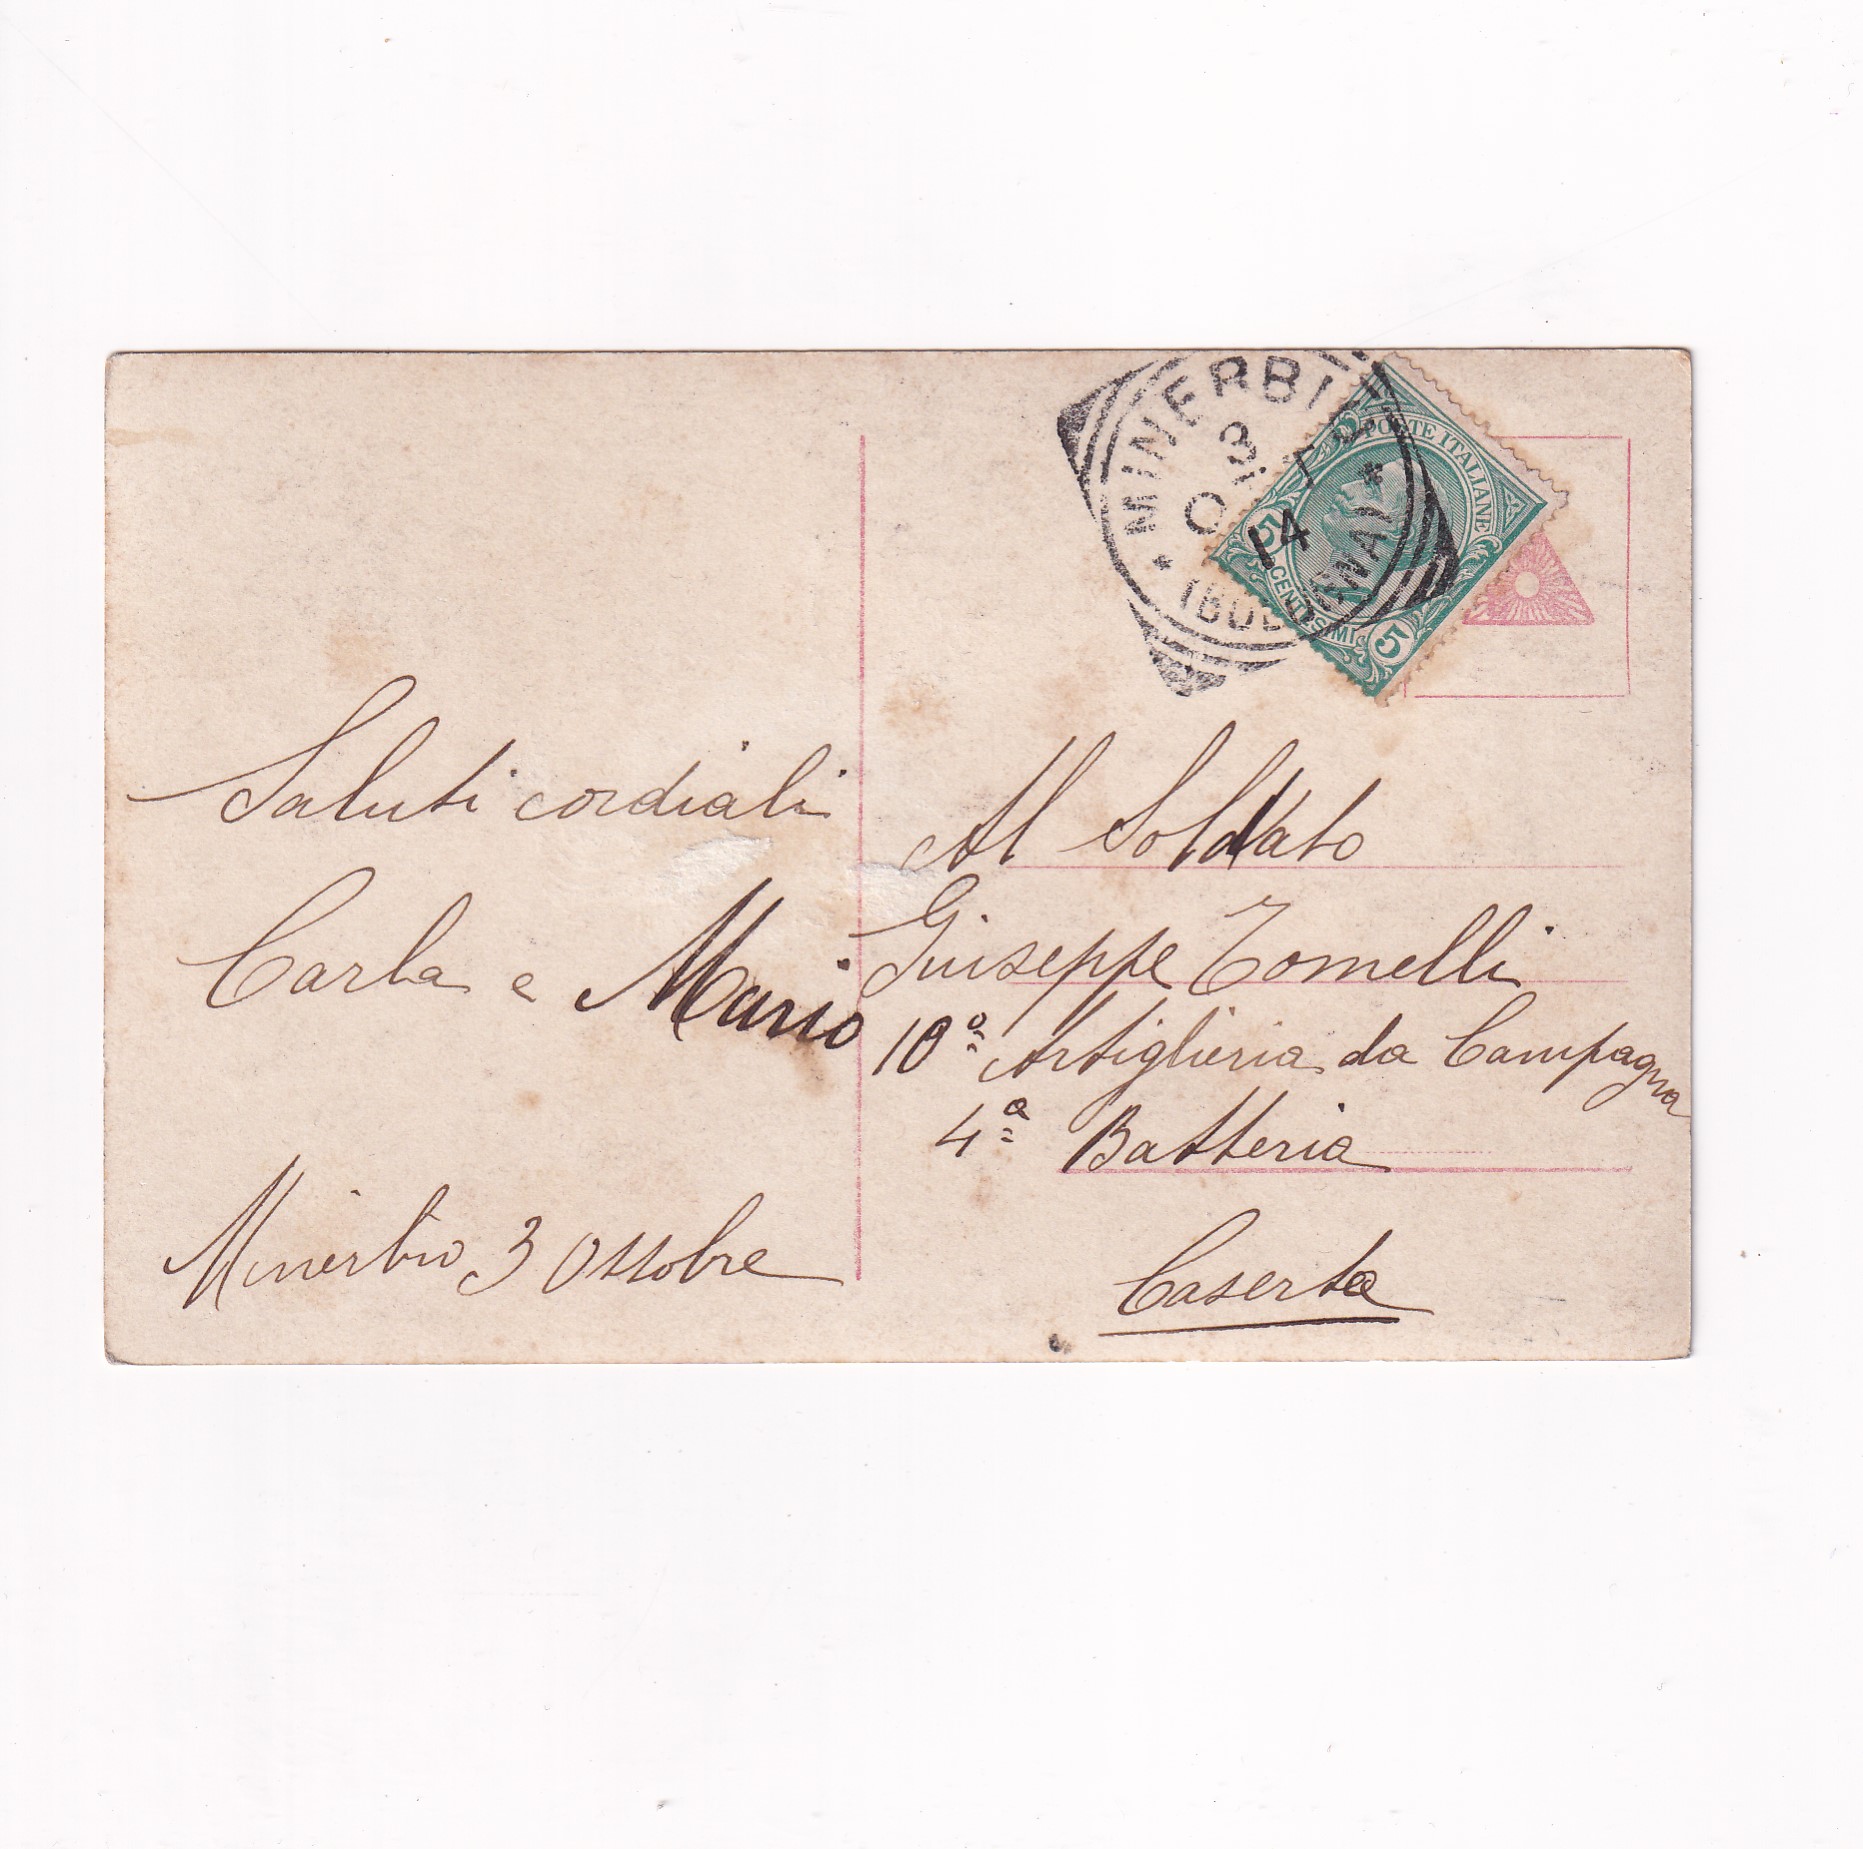 MINERBIO
3
OTT
14
(BOLOGNA)
POSTE ITALIANE
5 CENTESIMI 5
Saluti cordiali
Carla e Mario
Minerbio 3 Ottobre
Al Soldato
Giuseppe Tomelli
10º Artiglieria da Campagna
4ª Batteria
Caserta